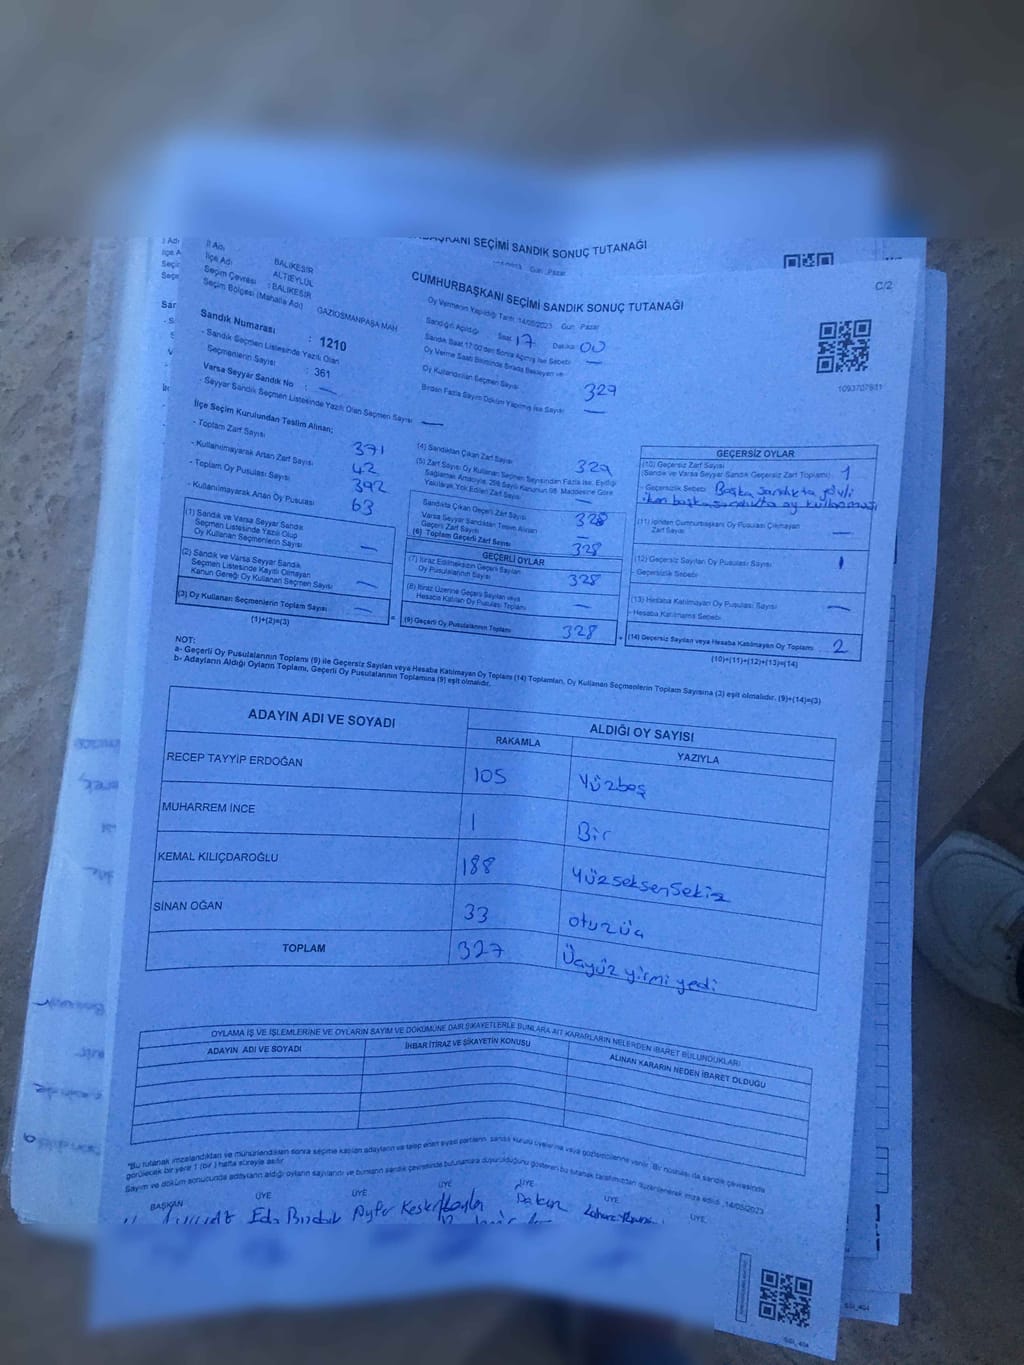 BAŞKANI SEÇİMİ SANDIK SONUÇ TUTANAĞI
Gün : Pazar
C/2
İl Adı BALIKESİR
İlçe Adı ALTIEYLÜL
Seçim Çevresi : BALIKESİR
Seçim Bölgesi (Mahalle Adı) GAZİOSMANPAŞA MAH
CUMHURBAŞKANI SEÇİMİ SANDIK SONUÇ TUTANAĞI
1093707911
Sandık Numarası : 1210
- Sandık Seçmen Listesinde Yazılı Olan
Seçmenlerin Sayısı : 361
Varsa Seyyar Sandık No : —
- Seyyar Sandık Seçmen Listesinde Yazılı Olan Seçmen Sayısı —
Oy Vermenin Yapıldığı Tarih :14/05/2023 Gün : Pazar
Sandığın Açıldığı Saat 17 Dakika 00
Sandık Saat 17:00'den Sonra Açılmış İse Sebebi —
Oy Verme Saati Bitiminde Sırada Bekleyen ve
Oy Kullandırılan Seçmen Sayısı 329
Birden Fazla Sayım Döküm Yapılmış ise Sayısı —
İlçe Seçim Kurulundan Teslim Alınan;
- Toplam Zarf Sayısı 371
- Kullanılmayarak Artan Zarf Sayısı 42
- Toplam Oy Pusulası Sayısı 392
- Kullanılmayarak Artan Oy Pusulası 63
(1) Sandık ve Varsa Seyyar Sandık
Seçmen Listesinde Yazılı Olup
Oy Kullanan Seçmenlerin Sayısı —
(2) Sandık ve Varsa Seyyar Sandık
Seçmen Listesinde Kayıtlı Olmayan
Kanun Gereği Oy Kullanan Seçmen Sayısı —
(3) Oy Kullanan Seçmenlerin Toplam Sayısı —
(1)+(2)=(3)
(4) Sandıktan Çıkan Zarf Sayısı 329
(5) Zarf Sayısı Oy Kullanan Seçmen Sayısından Fazla ise, Eşitliği
Sağlamak Amacıyla, 298 Sayılı Kanunun 98. Maddesine Göre
Yakılarak Yok Edilen Zarf Sayısı
Sandıkta Çıkan Geçerli Zarf Sayısı 328
Varsa Seyyar Sandıktan Teslim Alınan
Geçerli Zarf Sayısı —
(6) Toplam Geçerli Zarf Sayısı 328
GEÇERLİ OYLAR
(7) İtiraz Edilmeksizin Geçerli Sayılan
Oy Pusulalarının Sayısı 328
(8) İtiraz Üzerine Geçerli Sayılan veya
Hesaba Katılan Oy Pusulası Toplamı —
(9) Geçerli Oy Pusulalarının Toplamı 328
GEÇERSİZ OYLAR
(10) Geçersiz Zarf Sayısı
(Sandık ve Varsa Seyyar Sandık Geçersiz Zarf Toplamı) 1
- Geçersizlik Sebebi Başka sandıkta görevli
iken başka sandıkta oy kullanması
(11) İçinden Cumhurbaşkanı Oy Pusulası Çıkmayan
Zarf Sayısı —
(12) Geçersiz Sayılan Oy Pusulası Sayısı 1
- Geçersizlik Sebebi
(13) Hesaba Katılmayan Oy Pusulası Sayısı —
- Hesaba Katılmama Sebebi
(14) Geçersiz Sayılan veya Hesaba Katılmayan Oy Toplamı 2
(10)+(11)+(12)+(13)=(14)
NOT:
a- Geçerli Oy Pusulalarının Toplamı (9) ile Geçersiz Sayılan veya Hesaba Katılmayan Oy Toplamı (14) Toplamları, Oy Kullanan Seçmenlerin Toplam Sayısına (3) eşit olmalıdır. (9)+(14)=(3)
b- Adayların Aldığı Oyların Toplamı, Geçerli Oy Pusulalarının Toplamına (9) eşit olmalıdır.
ADAYIN ADI VE SOYADI ALDIĞI OY SAYISI
RAKAMLA YAZIYLA
RECEP TAYYİP ERDOĞAN 105 Yüzbeş
MUHARREM İNCE 1 Bir
KEMAL KILIÇDAROĞLU 188 Yüzseksensekiz
SİNAN OĞAN 33 otuzüç
TOPLAM 327 Üçyüz yirmi yedi
OYLAMA İŞ VE İŞLEMLERİNE VE OYLARIN SAYIM VE DÖKÜMÜNE DAİR ŞİKAYETLERLE BUNLARA AİT KARARLARIN NELERDEN İBARET BULUNDUKLARI
ADAYIN ADI VE SOYADI İHBAR İTİRAZ VE ŞİKAYETİN KONUSU ALINAN KARARIN NEDEN İBARET OLDUĞU
"Bu tutanak imzalandıktan ve mühürlendikten sonra seçime katılan adayların ve talep eden siyasi partilerin sandık kurulu üyelerine veya gözlemcilerine verilir. Bir nüshası da sandık çevresinde
görülecek bir yere 1 (bir) hafta süreyle asılır.
Sayım ve döküm sonucunda adayların aldığı oyların sayılarını ve bunların sandık çevresinde bulunanlara duyurulduğunu gösteren bu tutanak tarafımızdan düzenlenerek imza edildi. 14/05/2023
BAŞKAN ÜYE ÜYE ÜYE ÜYE ÜYE ÜYE
Eda Ayfer